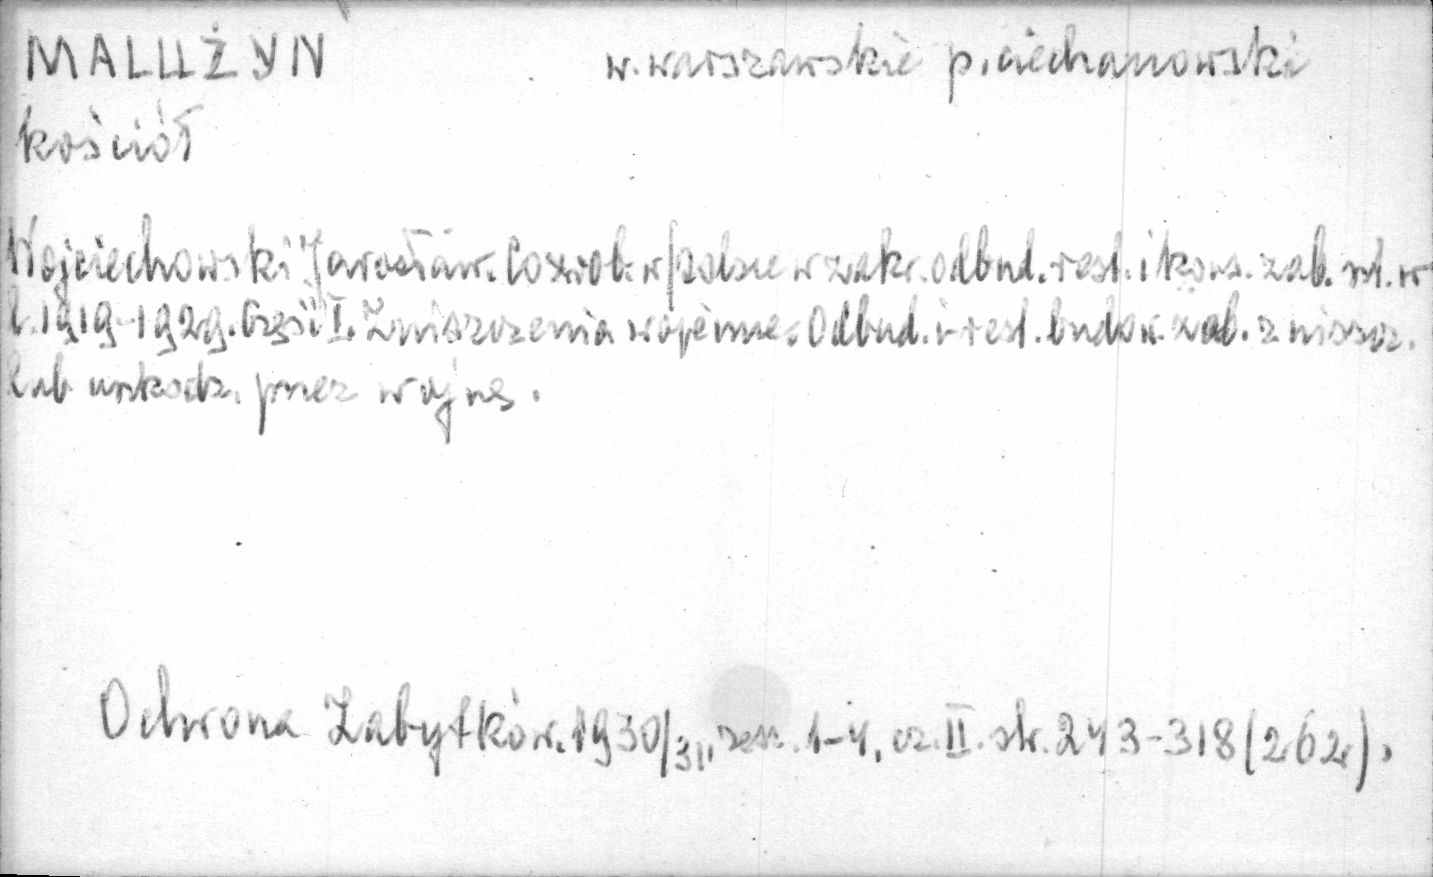 MALUŻYN w. warszawskie p. ciechanowski
kościół
Wojciechowski Jarosław. Co zrob. w Polsce w zakr. odbud. rest. i kons. zab. szt. w
l. 1919-1929. Część I. Zniszczenia wojenne. Odbud. i rest. budow. zab. zniszcz.
lub uszkodz. przez wojnę.
Ochrona Zabytków. 1930/31, zesz. 1-4, cz. II. str. 243-318 (262).